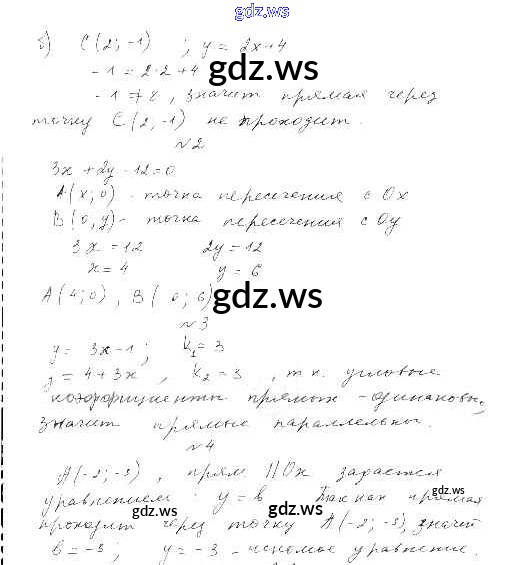 gdz.ws
б) C(2; -1) ; y = 2x+4
-1 = 2·2+4
gdz.ws
-1 ≠ 8, значит прямая через
точку C(2; -1) не проходит.
№2
3x + 2y - 12 = 0
A(x; 0) - точка пересечения с Ox
B(0, y) - точка пересечения с Oy
3x = 12 2y = 12
x = 4 y = 6
A(4; 0), B(0; 6)
gdz.ws
№3
y = 3x - 1; k₁ = 3
y = 4 + 3x, k₂ = 3, т.к. угловые
коэффициенты прямых - одинаковы,
значит прямые параллельны.
№4
A(-2; -3), прям. || Ox задается
gdz.ws
уравнением: y = b Так как прямая
gdz.ws
gdz.ws
проходит через точку A(-2; -3), значит
b = -3; y = -3 - искомое уравнение.